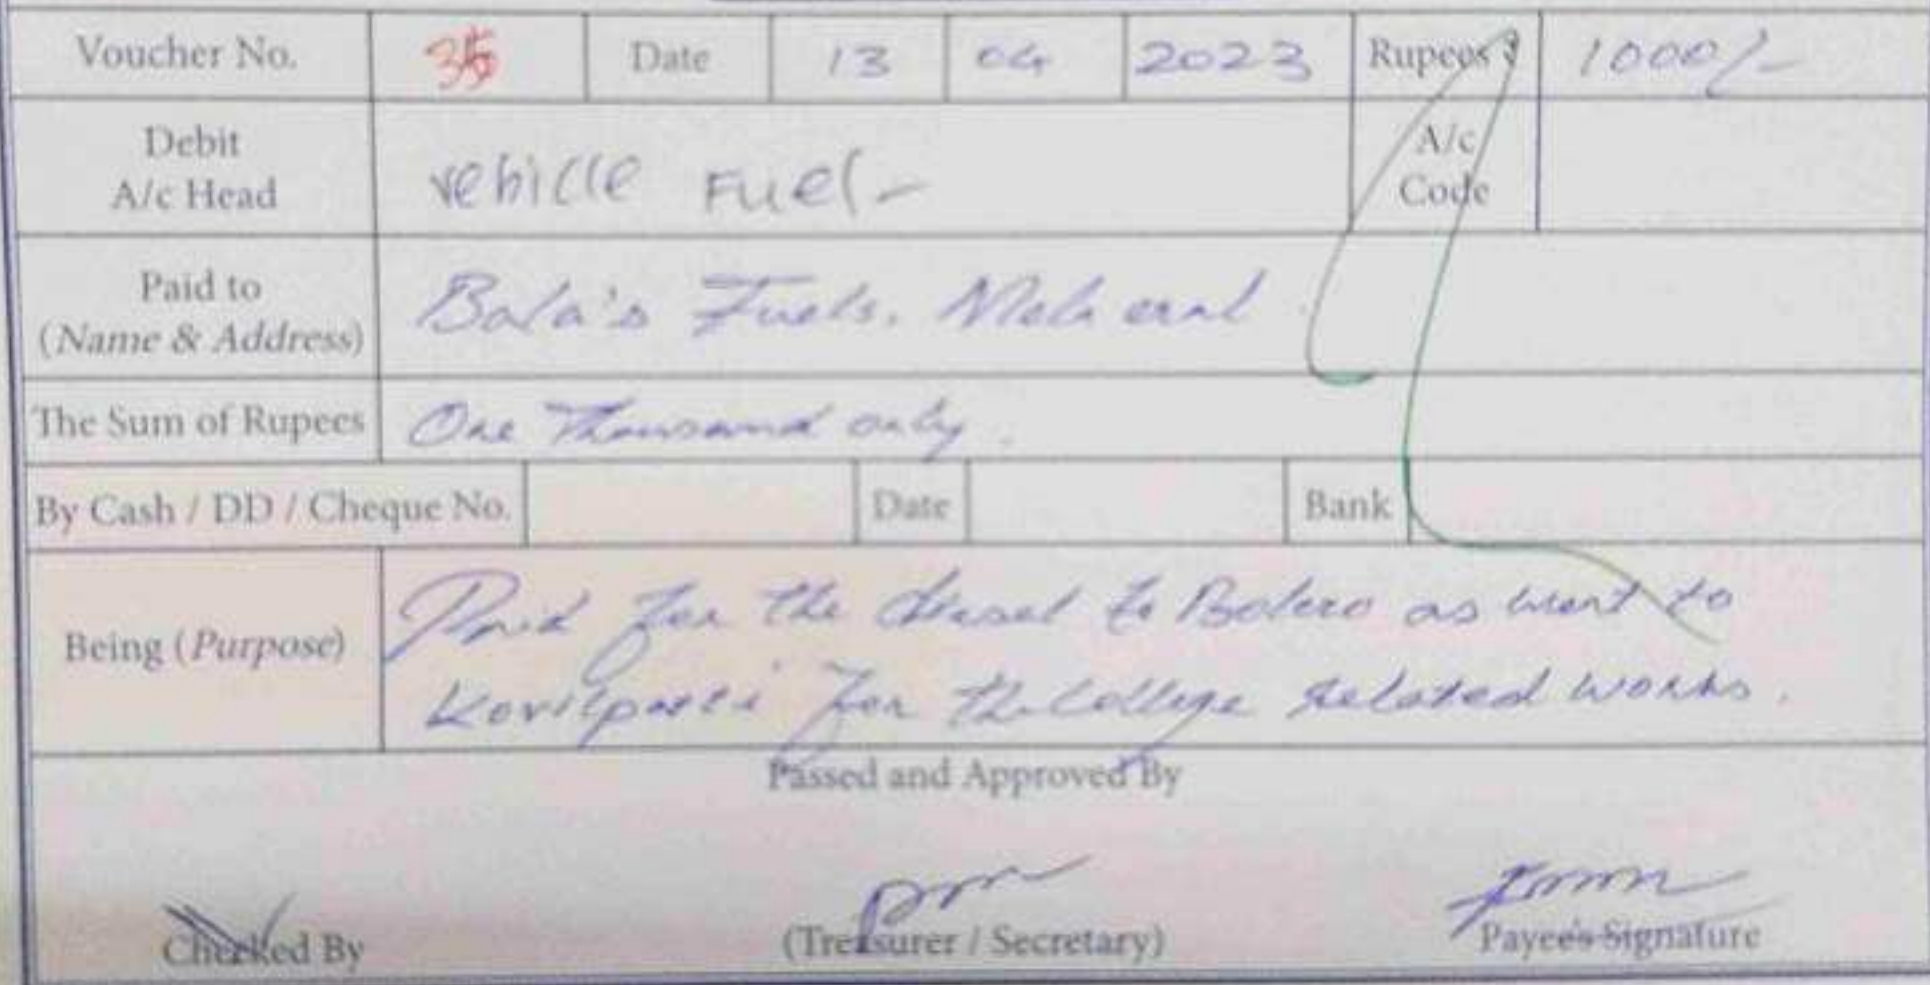 Voucher No. 35 Date 13 04 2023 Rupees ₹ 1000/-
Debit
A/c Head
vehicle Fuel -
A/c
Code
Paid to
(Name & Address)
Bala's Fuels. Mela eral.
The Sum of Rupees One Thousand only.
By Cash / DD / Cheque No. Date Bank
Being (Purpose)
Paid for the diesel to Bolero as went to
Kovilpatti for the College related works.
Passed and Approved By
Checked By (Treasurer / Secretary) Payee's Signature